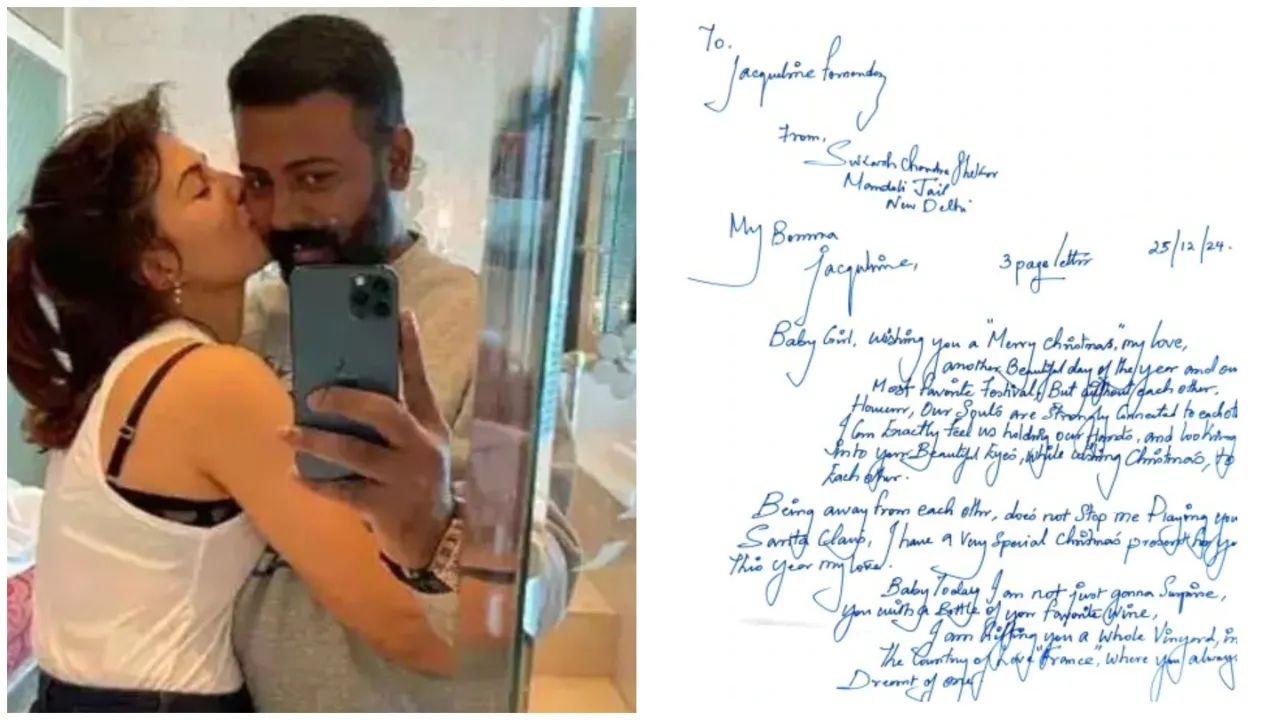 To.
Jacqueline Fernandez
From,
Sukash Chandra Shekar
Mandoli Jail
New Delhi
My Bomma
Jacquline,
3 page letter
25/12/24.
Baby Girl, wishing you a "Merry Christmas," my love,
another Beautiful day of the year and ou
Most favorite Festival, But without each other.
However, Our Souls are Strongly Connected to each oth
I Can Exactly feel us holding our Hands, and looking
into your Beautiful Eyes, while wishing Christmas, to
Each other.
Being away from each other, does not stop me Playing you
Santa Claus, I have a Very Special Christmas present for yo
This year my love.
Baby Today I am not just gonna Surprise,
you with a Bottle of your favorite Wine,
I am Gifting you a whole Vinyard, in
The Country of Love "France", where you always
Dreamt of